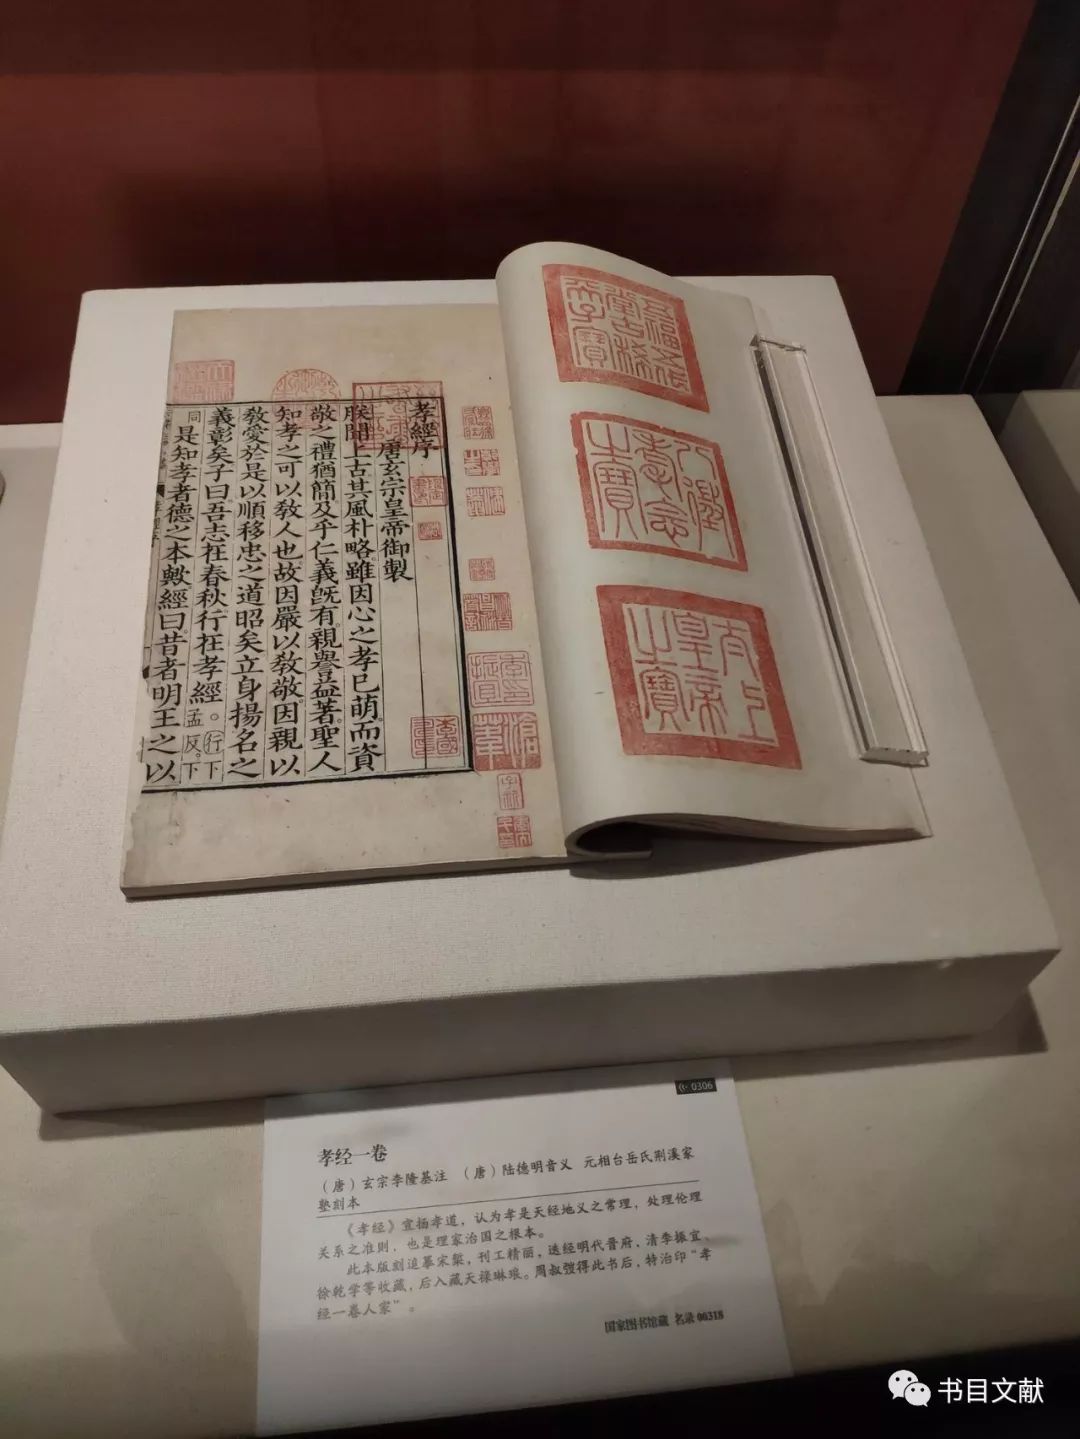 孝經序
唐玄宗皇帝御製
朕聞上古其風朴略雖因心之孝已萌而資
敬之禮猶簡及乎仁義旣有親譽益著聖人
知孝之可以敎人也故因嚴以敎敬因親以
敎愛於是以順移忠之道昭矣立身揚名之
義彰矣子曰吾志在春秋行在孝經。孟反。行下
同是知孝者德之本歟經曰昔者明王之以
五福五代
堂古稀
天子寶
八徵
耄念
之寶
太上
皇帝
之寶
0306
孝经一卷
（唐）玄宗李隆基注 （唐）陆德明音义 元相台岳氏荆溪家
塾刻本
《孝经》宣扬孝道，认为孝是天经地义之常理，处理伦理
关系之准则，也是理家治国之根本。
此本版刻追摹宋椠，刊工精丽，迭经明代晋府，清李振宜、
徐乾学等收藏，后入藏天禄琳琅。周叔弢得此书后，特治印“孝
经一卷人家”。
国家图书馆藏 名录06318
书目文献